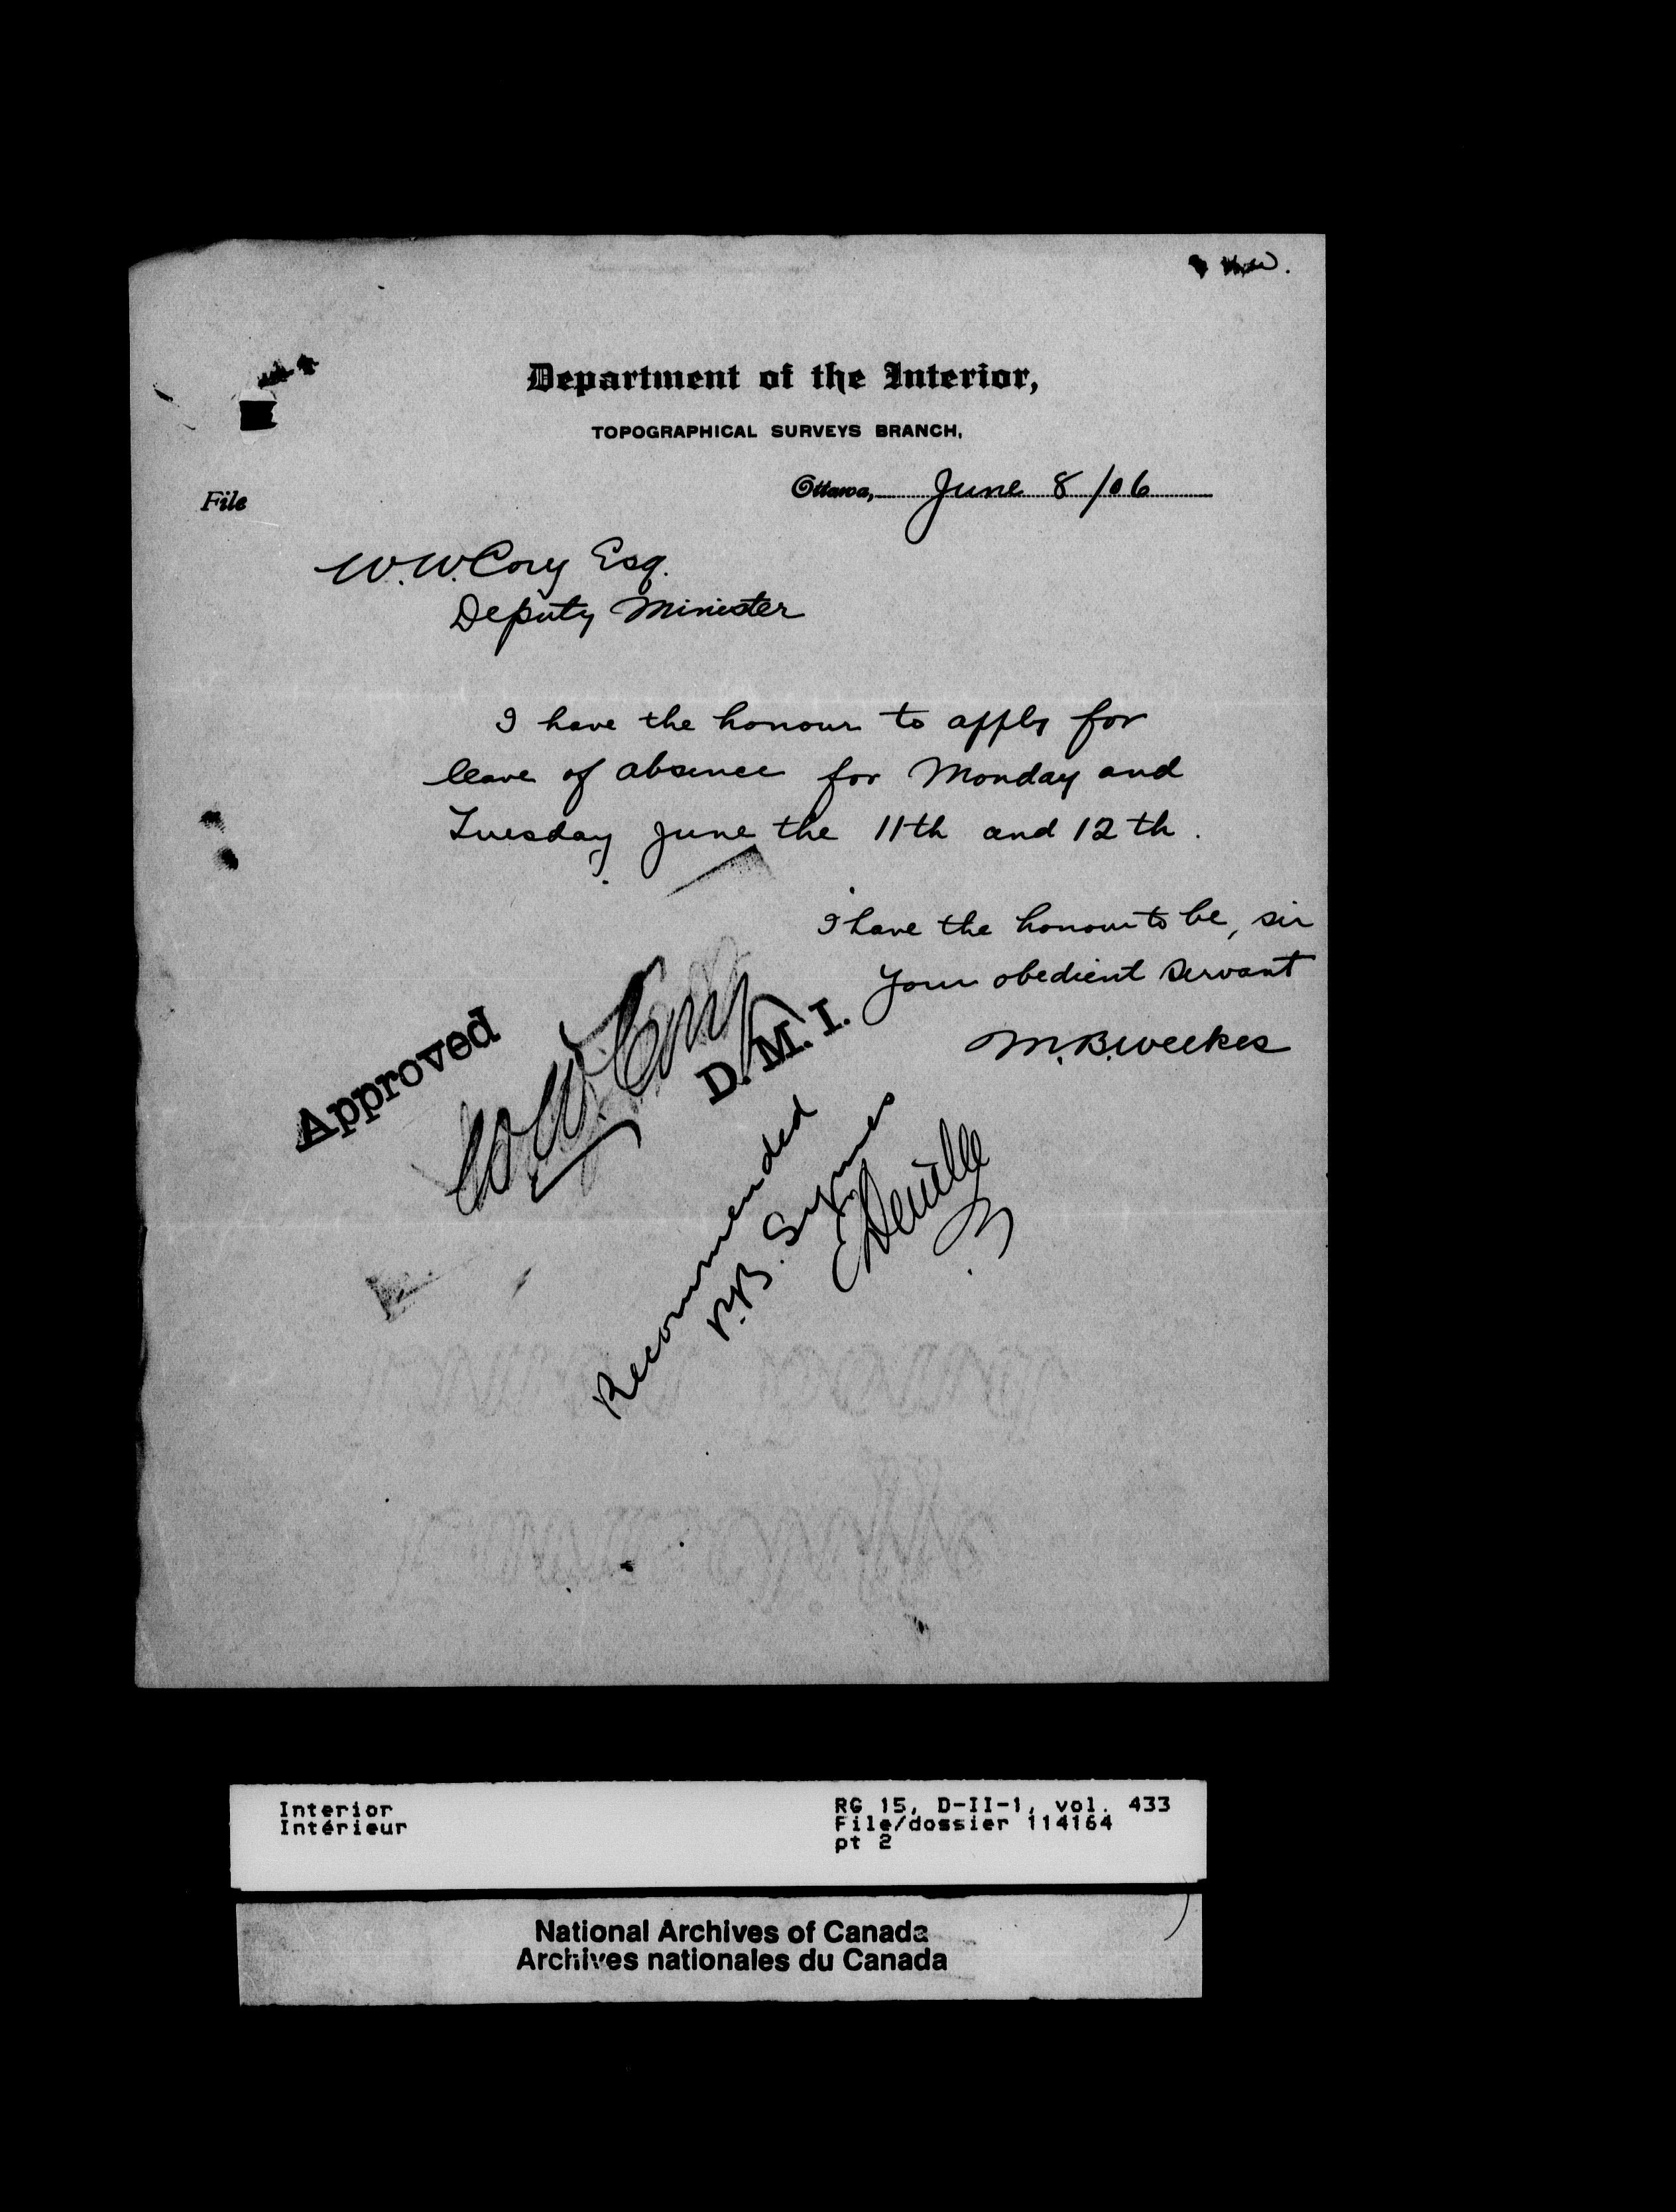 Department of the Interior,
TOPOGRAPHICAL SURVEYS BRANCH,
Ottawa, June 8/06
File
W.W. Cory Esq.
Deputy Minister
I have the honour to apply for
leave of absence for Monday and
Tuesday June the 11th and 12th.
I have the honour to be, sir
Your obedient servant
M.B. Weekes
Approved
W.W. Cory
D.M.I.
Recommended
P.B. Symes
E Deville
Interior
Intérieur
RG 15, D-II-1, vol. 433
File/dossier 114164
pt 2
National Archives of Canada
Archives nationales du Canada